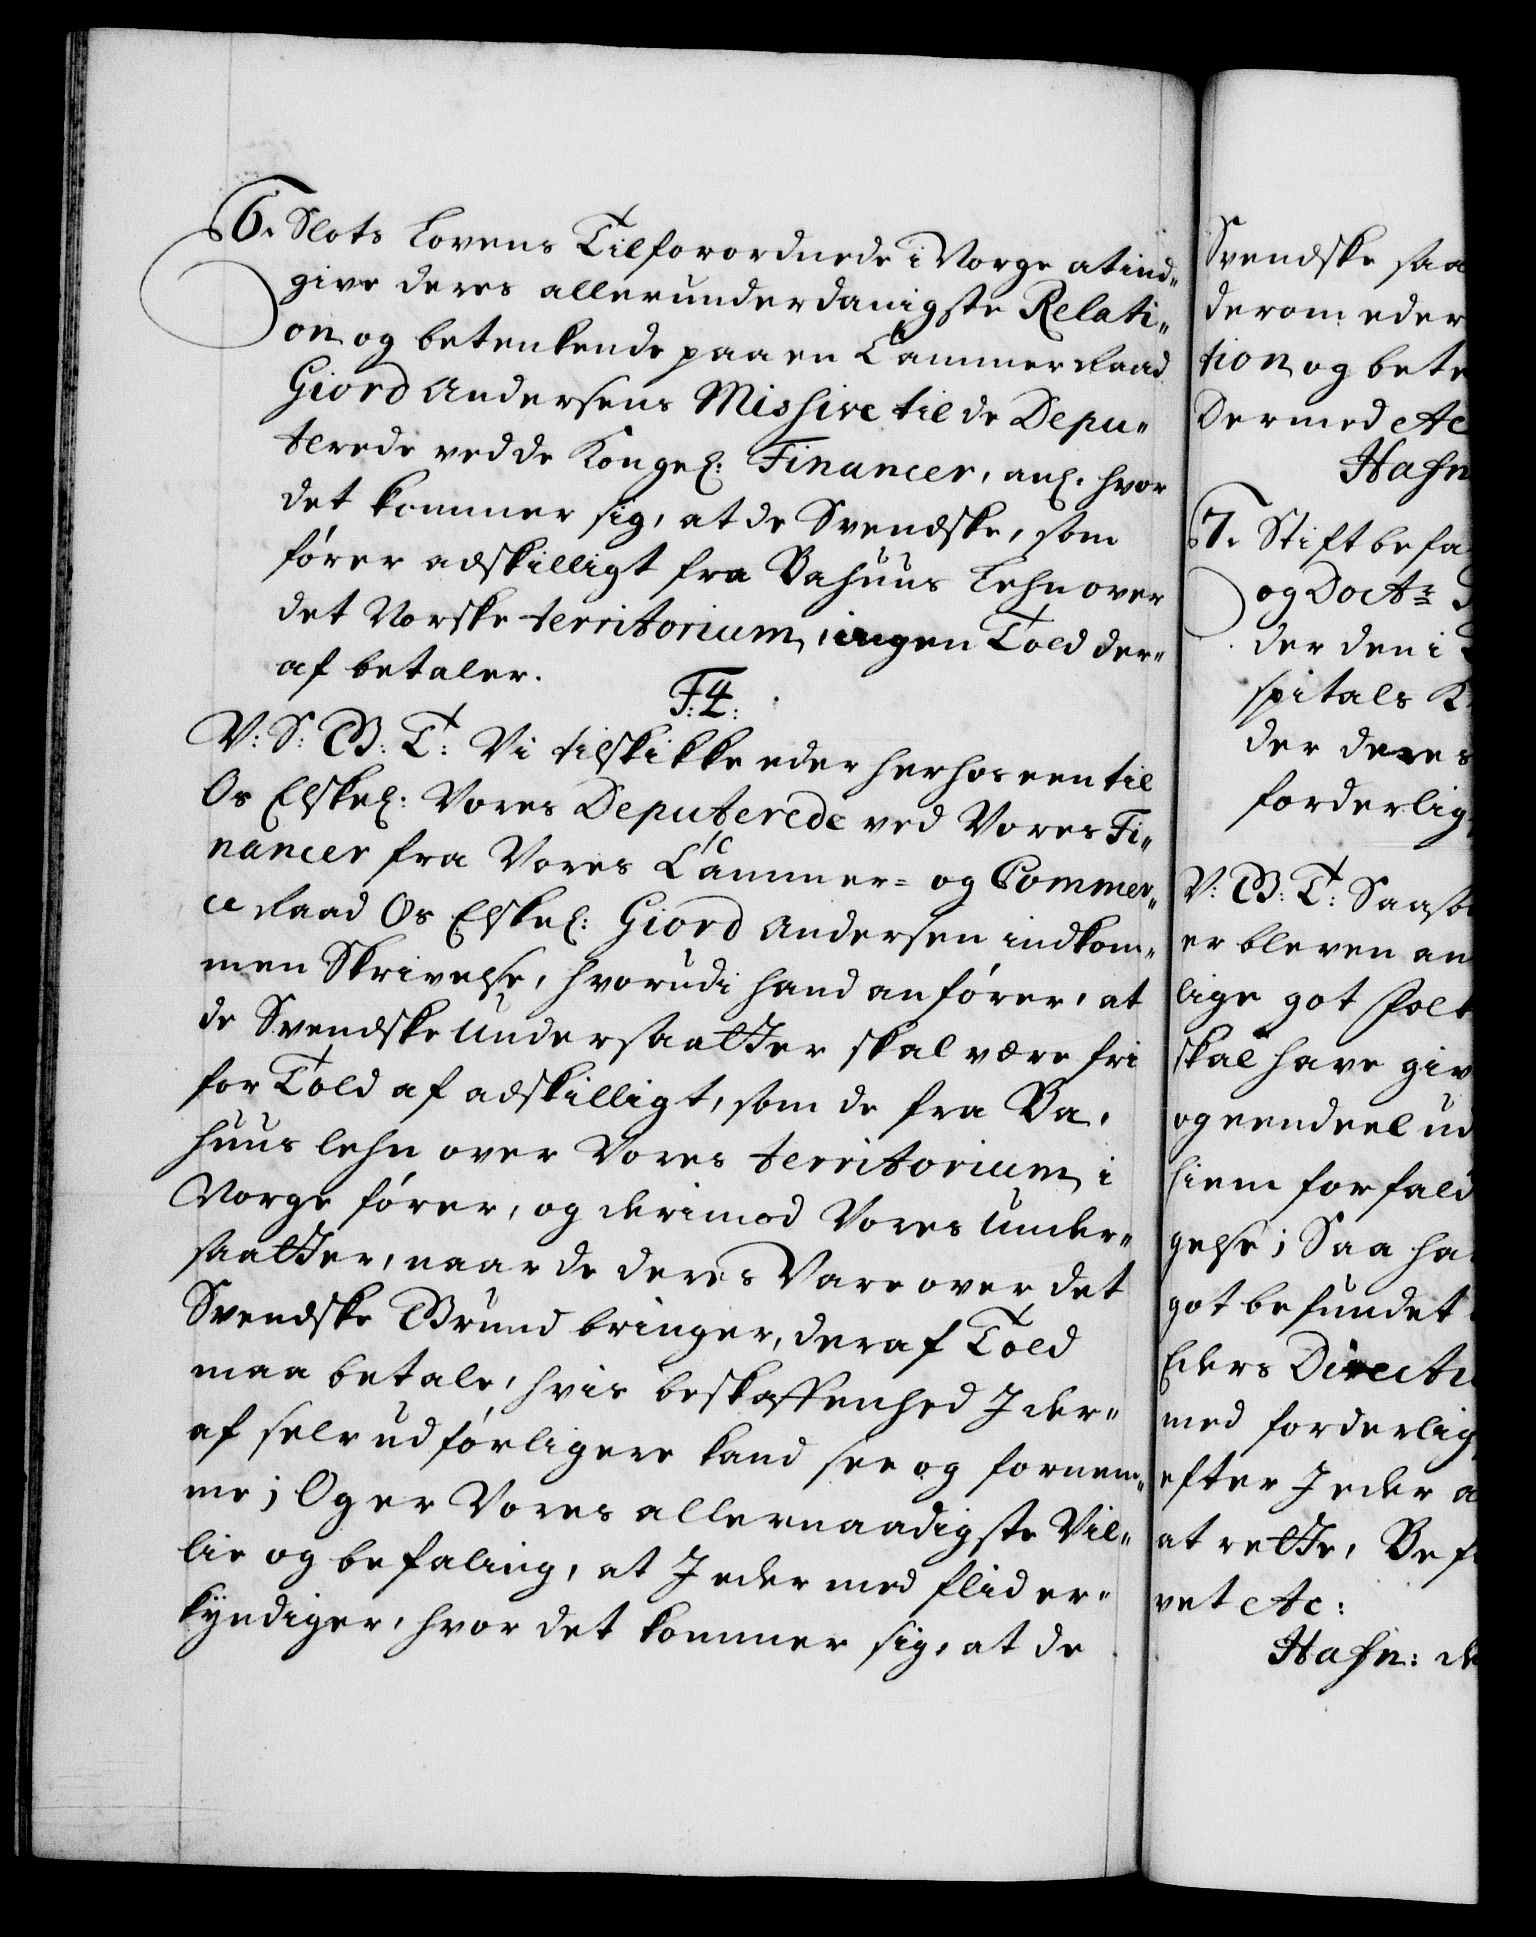 6. Slots Lovens Tilforordnede i Norge at ind„
give deres allerunderdanigste Relati„
on og betenkende paa en Cammer Raad
Giord Andersens Missive til de Depu„
terede ved de Kongel: Financer, anl. hvor
det kommer sig, at de Svendske, som
fører adskilligt fra Bahuus Lehn over
det Norske territorium, ingen Told der„
af betaler.
F: 4:
V: S: G: T: Vi tilskikke eder herhos een til
Os Elskel: Vores Deputerede ved Vores Fi„
nancer fra Vores Cammer= og Commer„
ce Raad Os Elskel: Giord Andersen indkom„
men Skrivelse, hvorudi hand anfører, at
de Svendske Undersaatter skal være fri
for Told af adskilligt, som de fra Ba„
huus lehn over Vores territorium i
Norge fører, og derimod Vores Under„
saatter, naar de deres Vare over det
Svendske Grund bringer, deraf Told
maa betale, hvis beskaffenhed I der„
af selv udførligere kand see og fornem„
me; Og er Vores allernaadigste Vil„
lie og befaling, at I eder med flid er„
kyndiger, hvor det kommer sig, at de
Svendske saa
derom eder
tion og bete
Dermed Ac
Hafn
7. Stiftbefa
og Doct:
der den i
spitals
der deres
forderlig
V: G: T: Saaso
er bleven an
lige got folk
skal have giv
og eendeel ud
hiem forfald
gelse; Saa ha
got befundet
Eders Directi
med forderlig
efter I eder a
at rette, Bef
vet Ac:
Hafn: d